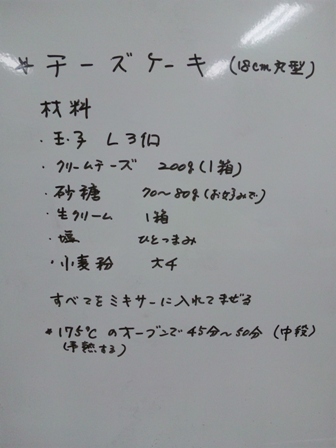 * チーズケーキ (18cm丸型)
材料
・玉子 L3個
・クリームチーズ 200g(1箱)
・砂糖 70〜80g(お好みで)
・生クリーム 1箱
・塩 ひとつまみ
・小麦粉 大4
すべてをミキサーに入れてまぜる
* 175℃のオーブンで45分〜50分 (中段)
(予熱する)